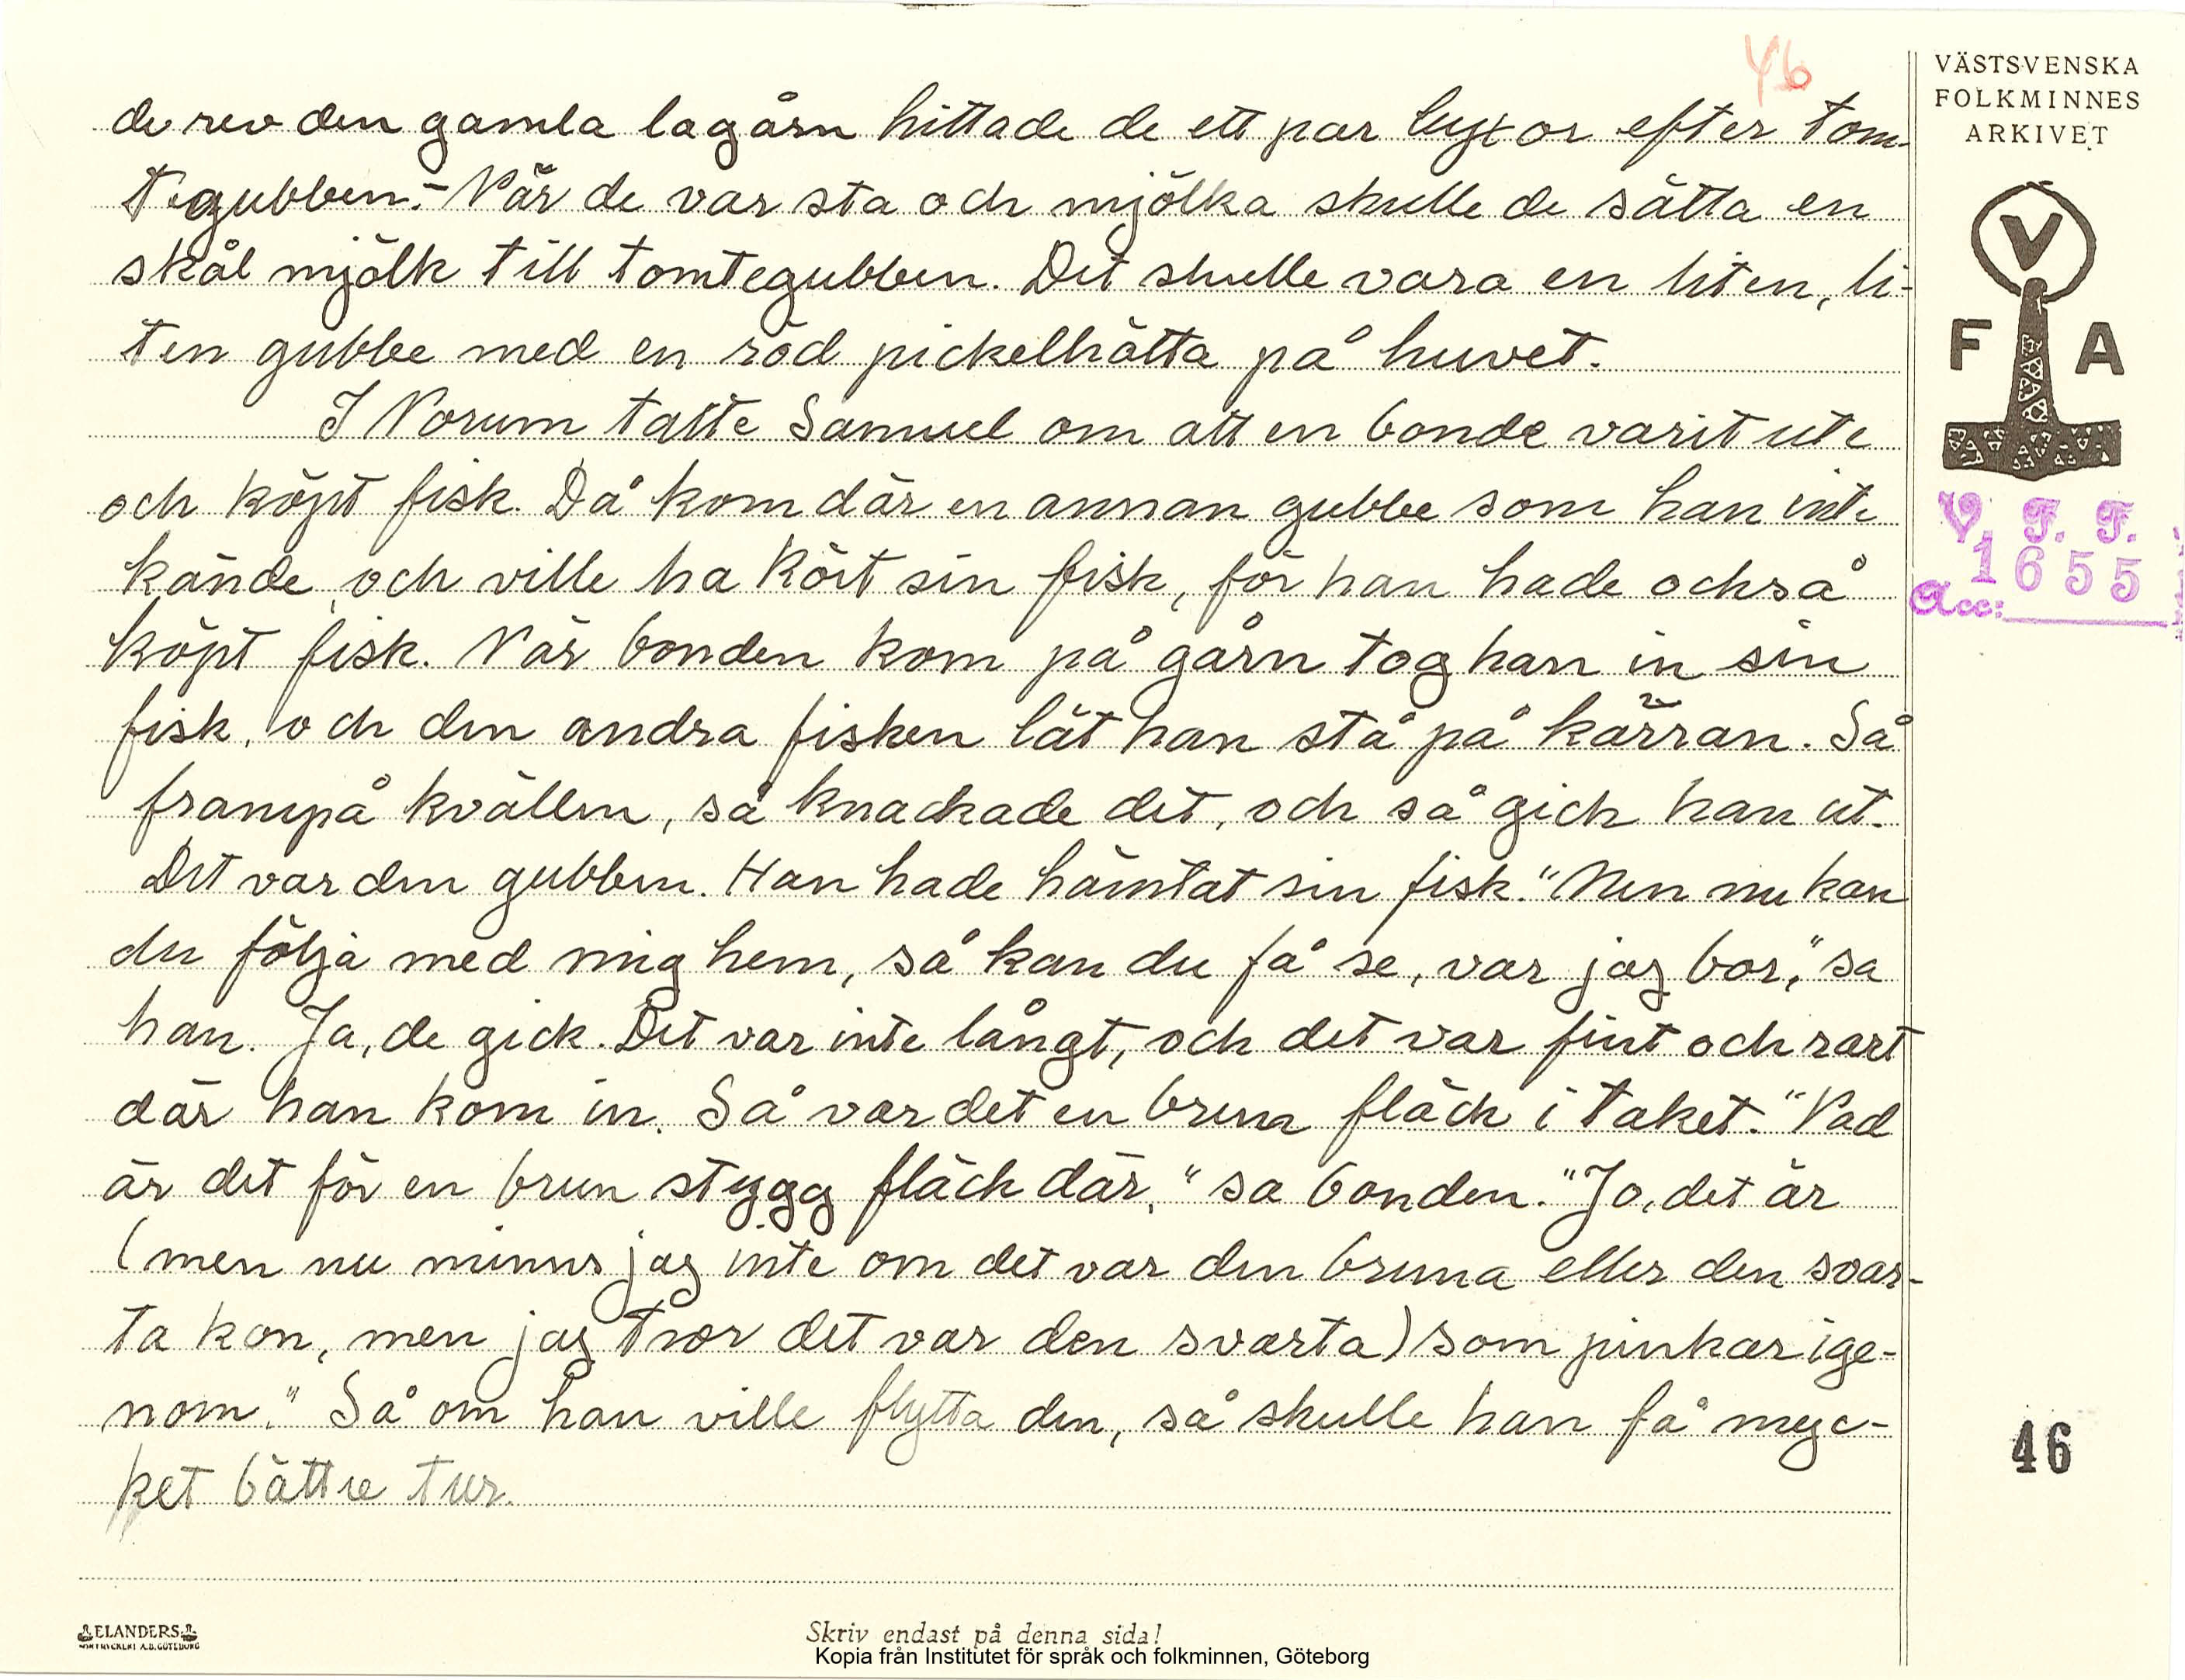 46
VÄSTSVENSKA
FOLKMINNES
ARKIVET
de rev den gamla lagårn hittade de ett par byxor efter tom-
tegubben. - När de var sta och mjölka skulle de sätta en
skål mjölk till tomtegubben. Det skulle vara en liten, li-
ten gubbe med en röd pickelhätta på huvet.
I Norum talte Samuel om att en bonde varit ute
och köpt fisk. Då kom där en annan gubbe som han inte
kände, och ville ha kört sin fisk, för han hade också
köpt fisk. När bonden kom på gårn tog han in sin
fisk, och den andra fisken lät han stå på kärran. Så
frampå kvällen, så knackade det, och så gick han ut.
Det var den gubben. Han hade hämtat sin fisk. "Men nu kan
du följa med mig hem, så kan du få se, var jag bor," sa
han. Ja, de gick. Det var inte långt, och det var fint och rart
där han kom in. Så var det en brun fläck i taket. "Vad
är det för en brun stygg fläck där," sa bonden. "Jo, det är
(men nu minns jag inte om det var den bruna eller den svar-
ta kon, men jag tror det var den svarta) som pinkar ige-
nom." Så om han ville flytta den, så skulle han få myc-
ket bättre tur.
V
F A
V. F. F.
1655
Acc:
46
ELANDERS
Skriv endast på denna sida!
Kopia från Institutet för språk och folkminnen, Göteborg